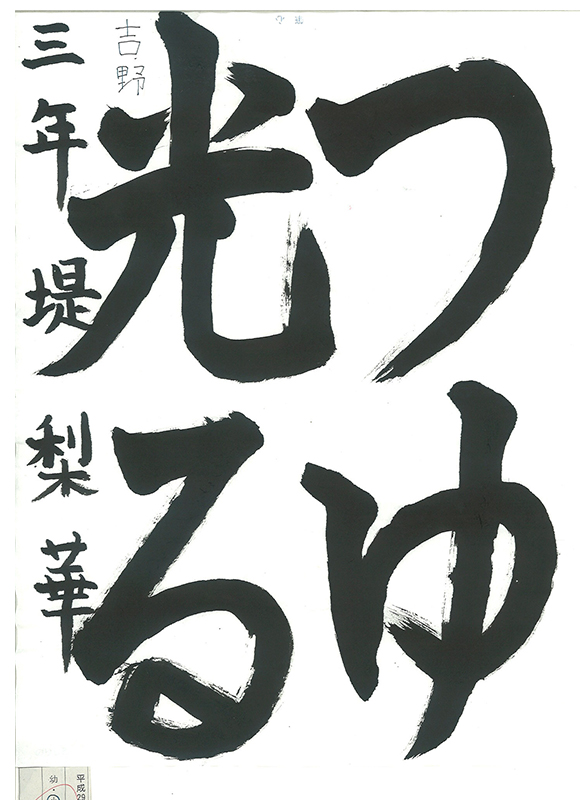 つゆ
光る
吉野
三年堤梨華
平成29
幼・